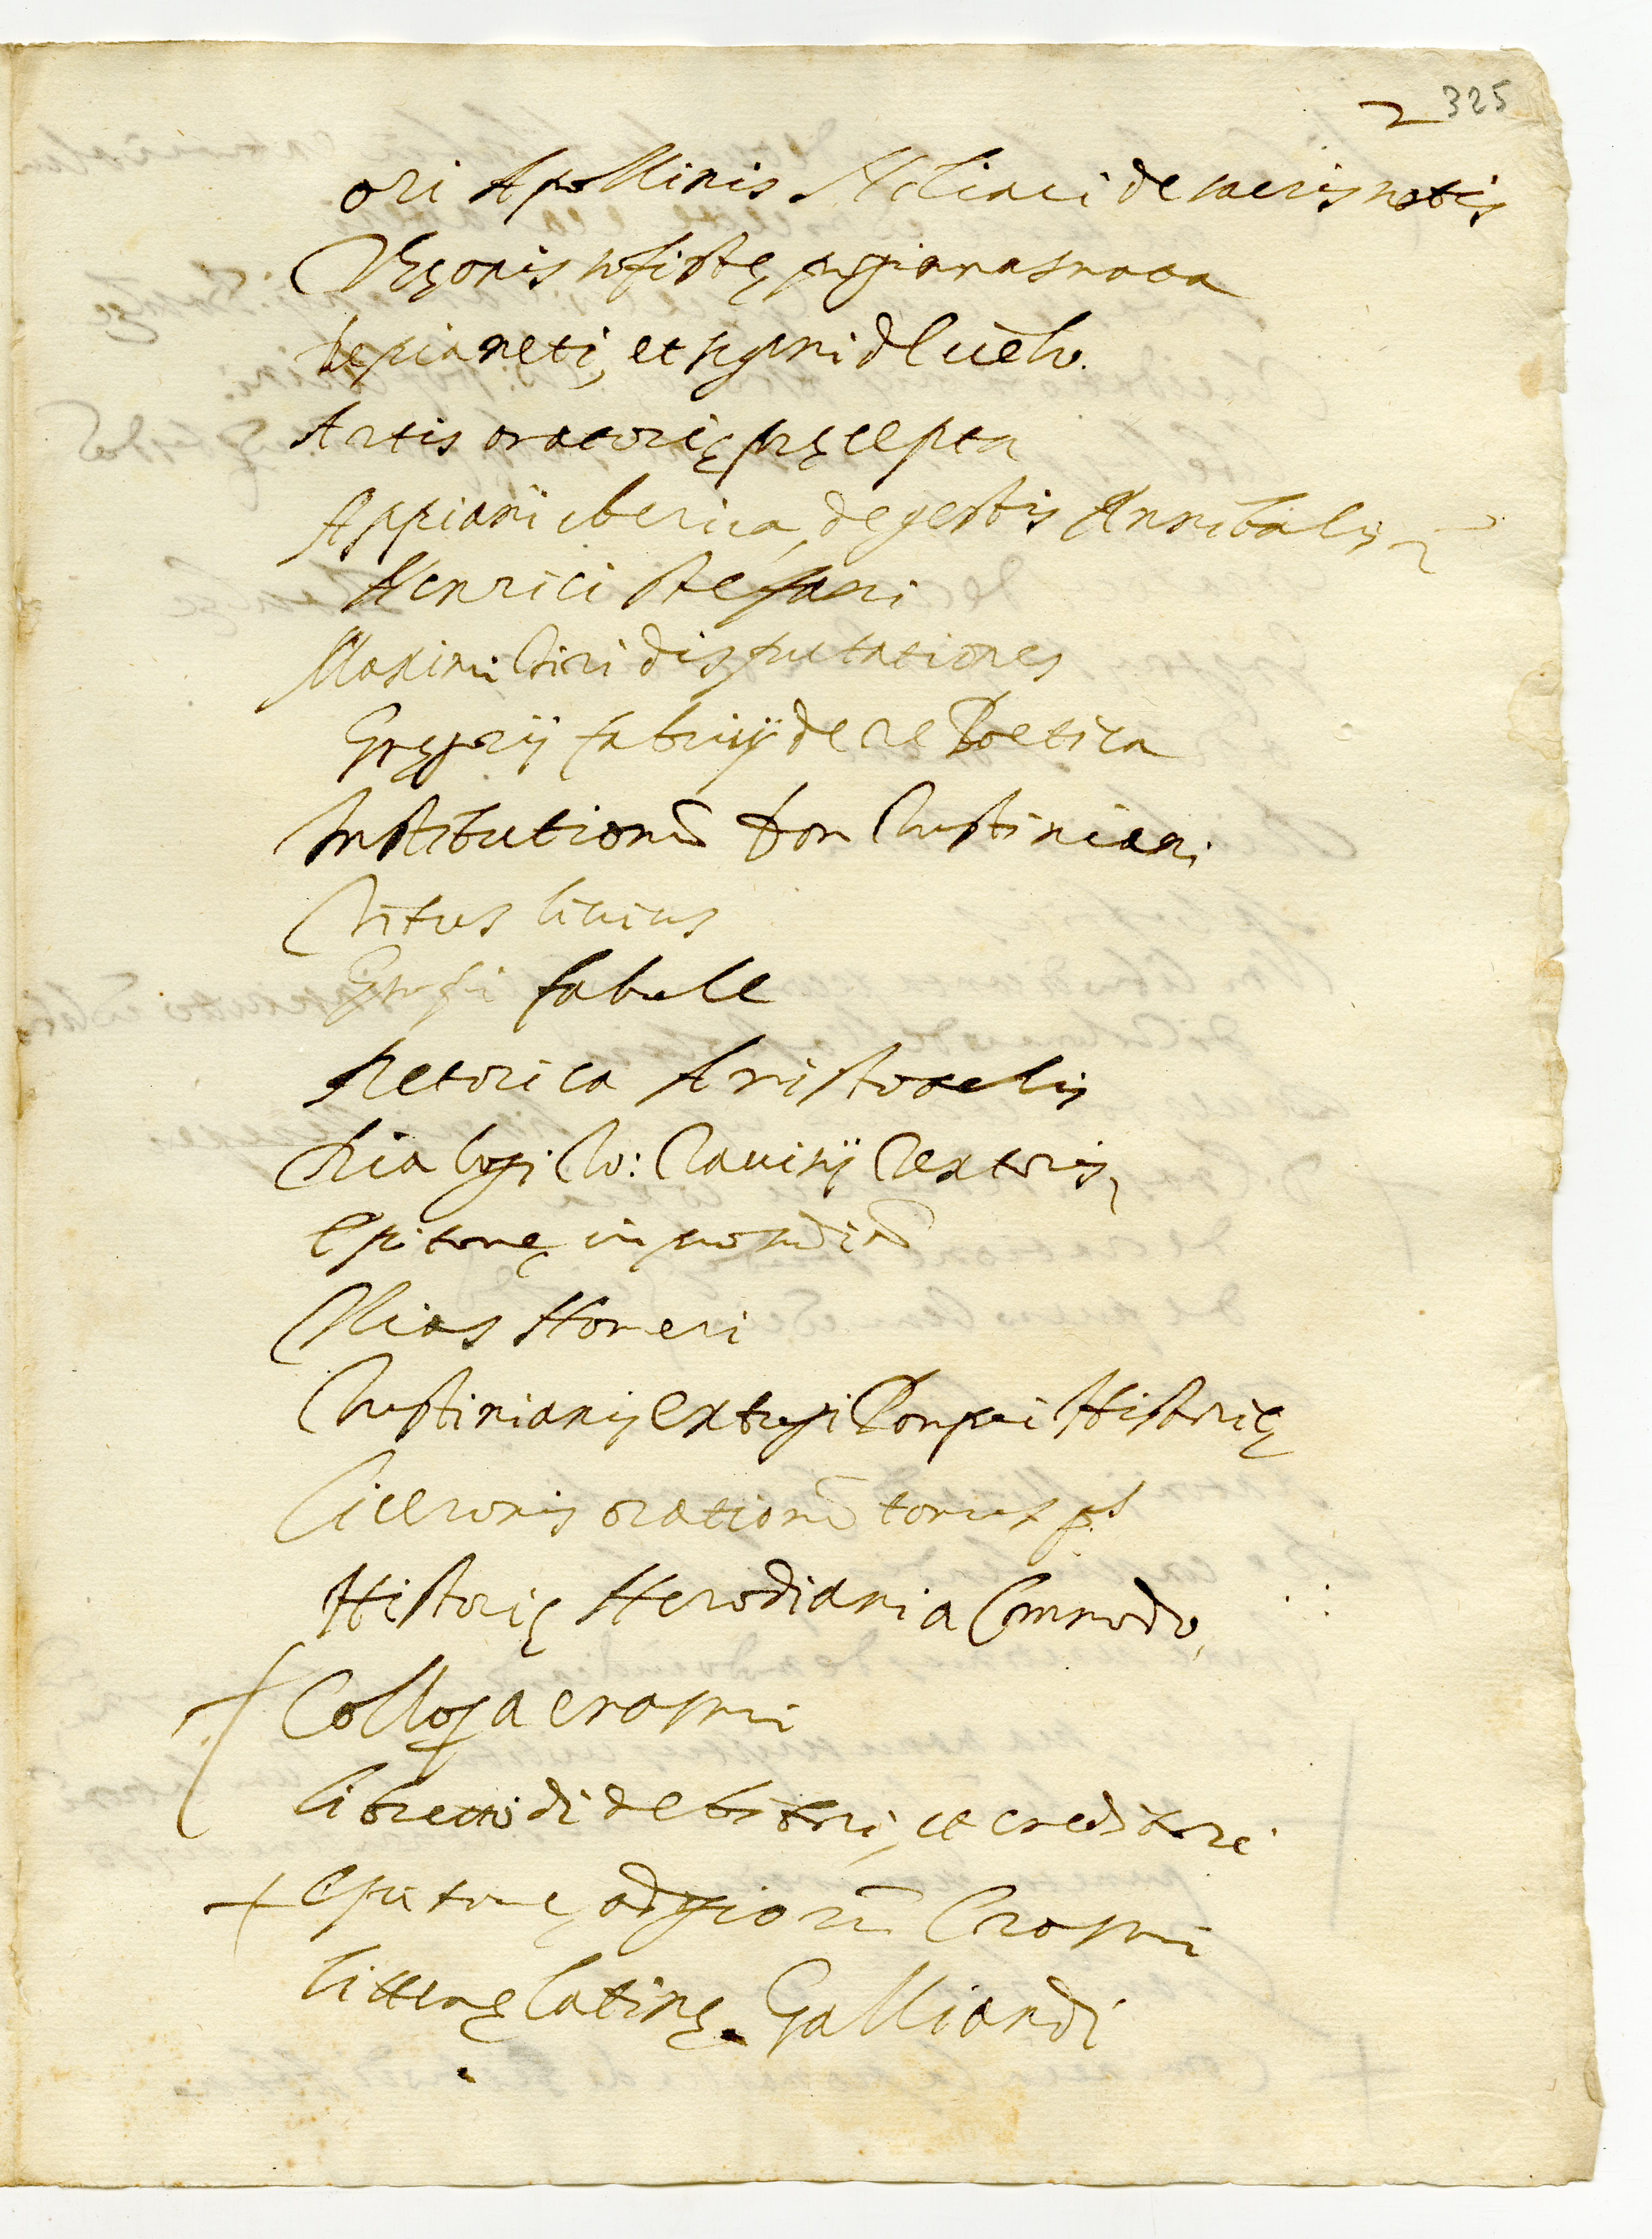 2 325
ori Apollinis Niliaci de sacris notis
Theonis sofistę progimnasmata
De pianeti, et segni dl cielo.
Artis oratorię pręcepta
Appiani iberica, de gestis Annibalis
Henrici Stefani
Maximi Tiri disputationes
Gregorij fabricij de re Poetica
Institutionũ Don Iustiniani
Titus livius
fabule
Retorica Aristotelis
Dialogi Io: Ravisij Textoris
Epitome
Ilias Homeri
Iustiniani ex trogi Pompei Historię
Ciceronis orationũ tomus ps
Historię Herodiani a Commodo
Colloqa erasmi
libretto di debitori, et creditori
Epitome adagiorũ Erasmi
litterę latinę. Galliandi